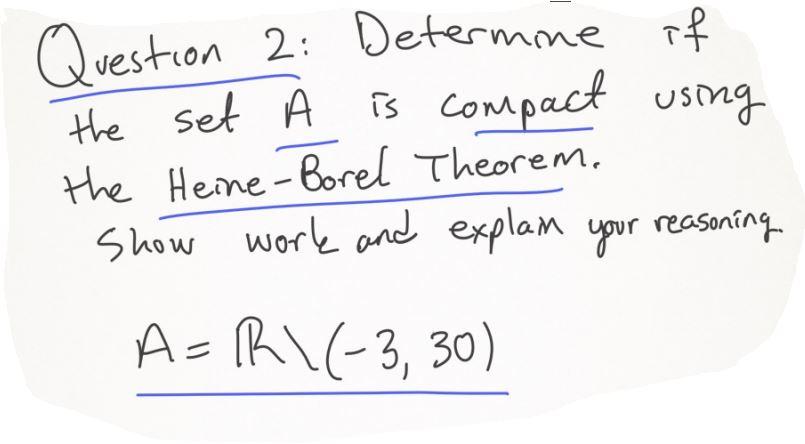 Question 2: Determine if
the set A is compact using
the Heine-Borel Theorem.
Show work and explain your reasoning.
A = ℝ\(-3, 30)